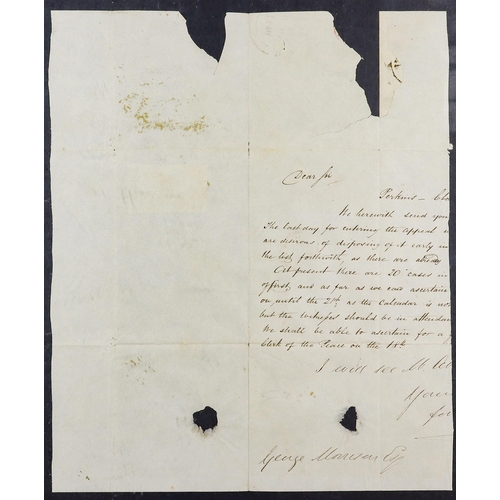 Dear Sir
Perkins –
We herewith send you
The last day for entering the appeal
are desirous of disposing of it early in
the list forthwith, as there are already
At present there are 20 cases in
offirst, and as far as we can ascertain
on until the 2d, as the calendar is
but the witnesses should be in attendan
We shall be able to ascertain for a
Clerk of the Peace on the 18th
I will see Mr
Your
for
George Morrison Esq